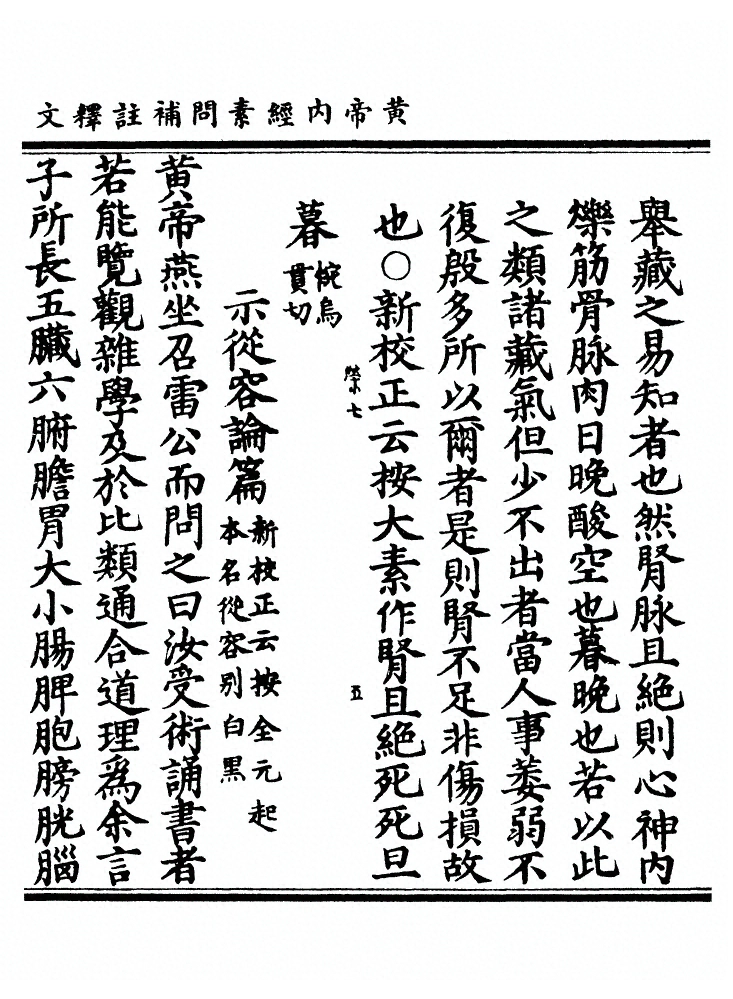 黄帝内經素問補註釋文
舉藏之易知者也然腎脉且絶則心神内
爍筋骨脉肉日晚酸空也暮晚也若以此
之類諸藏氣但少不出者當人事萎弱不
復殷多所以爾者是則腎不足非傷損故
也○新校正云按大素作腎且絶死死旦
滎七
五
暮惋烏貫切
示從容論篇新校正云按全元起本名從容别白黑
黄帝燕坐召雷公而問之曰汝受術誦書者
若能覽觀雜學及於比類通合道理爲余言
子所長五臟六腑膽胃大小腸脾胞膀胱腦